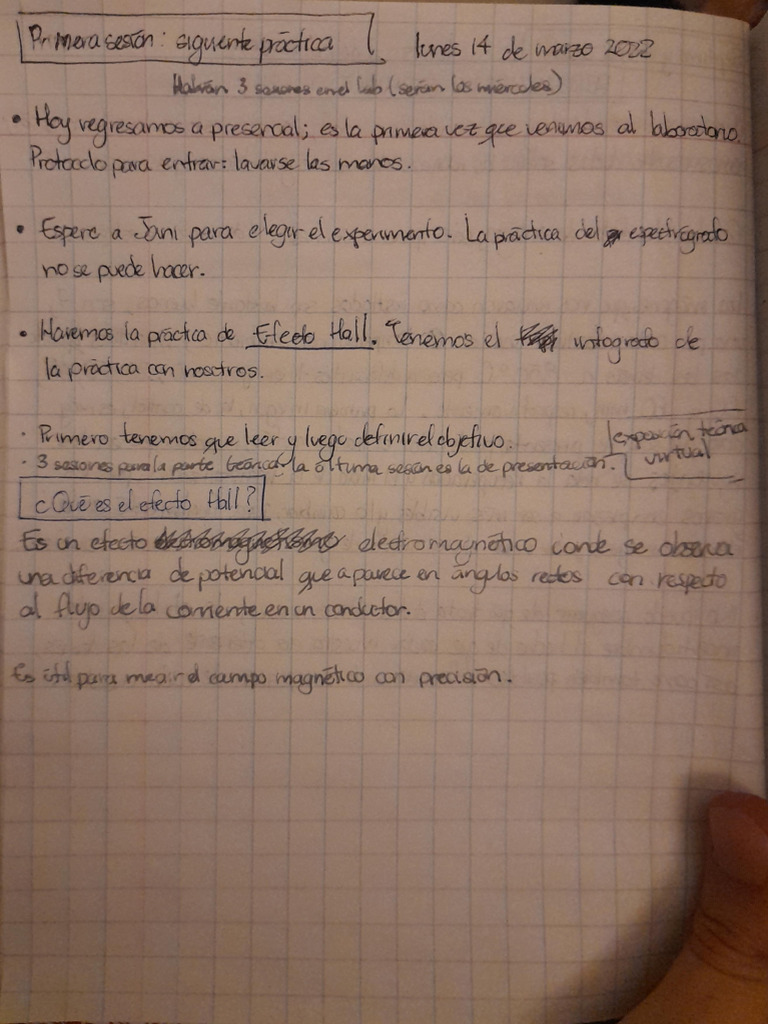 Primera sesión: siguiente práctica
lunes 14 de marzo 2022
Habrán 3 sesiones en el lab (serán los miércoles)
• Hoy regresamos a presencial; es la primera vez que venimos al laboratorio.
Protocolo para entrar: lavarse las manos.
• Espere a Jani para elegir el experimento. La práctica del espectrógrado
no se puede hacer.
• Haremos la práctica de Efecto Hall. Tenemos el integrado de
la práctica con nosotros.
· Primero tenemos que leer y luego definir el objetivo.
· 3 sesiones para la parte teórica, la última sesión es la de presentación.
exposición teórica
virtual
¿Qué es el efecto Hall?
Es un efecto electromagnético donde se observa
una diferencia de potencial que aparece en ángulos rectos con respecto
al flujo de la corriente en un conductor.
Es útil para medir el campo magnético con precisión.